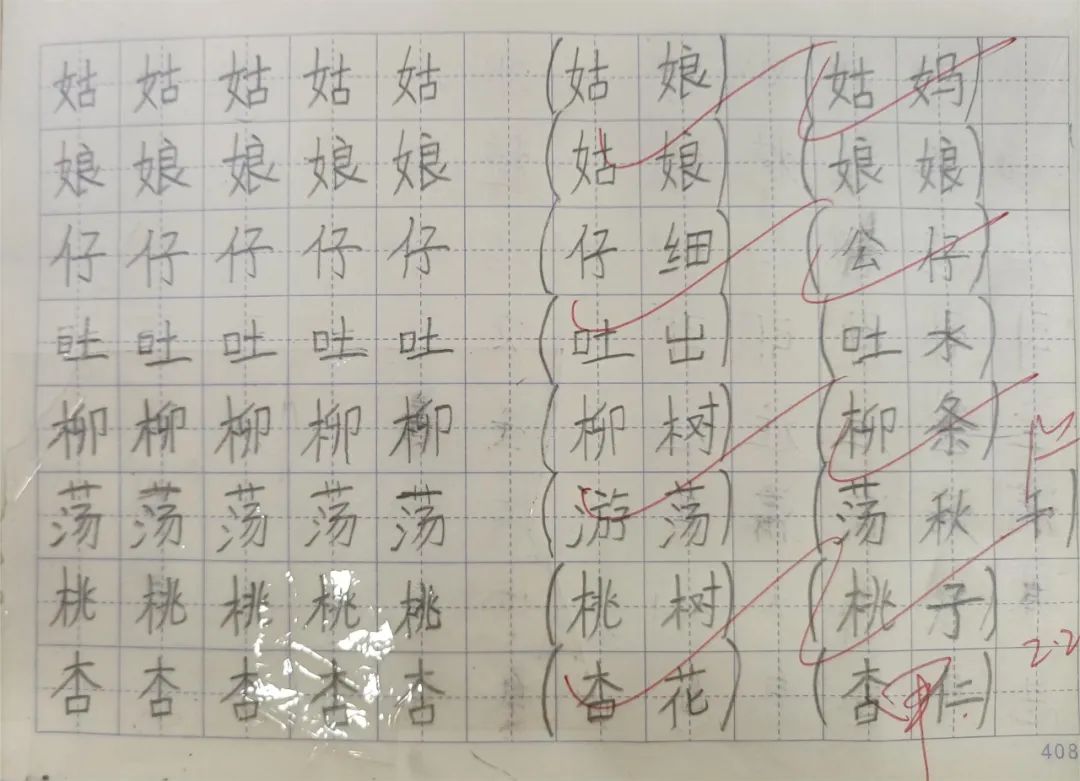 姑 姑 姑 姑 姑 (姑 娘) (姑 妈)
娘 娘 娘 娘 娘 (姑 娘) (娘 娘)
仔 仔 仔 仔 仔 (仔 细) (公 仔)
吐 吐 吐 吐 吐 (吐 出) (吐 水)
柳 柳 柳 柳 柳 (柳 树) (柳 条)
荡 荡 荡 荡 荡 (游 荡) (荡 秋 千)
桃 桃 桃 桃 桃 (桃 树) (桃 子)
杏 杏 杏 杏 杏 (杏 花) (杏 仁)
2.2
408